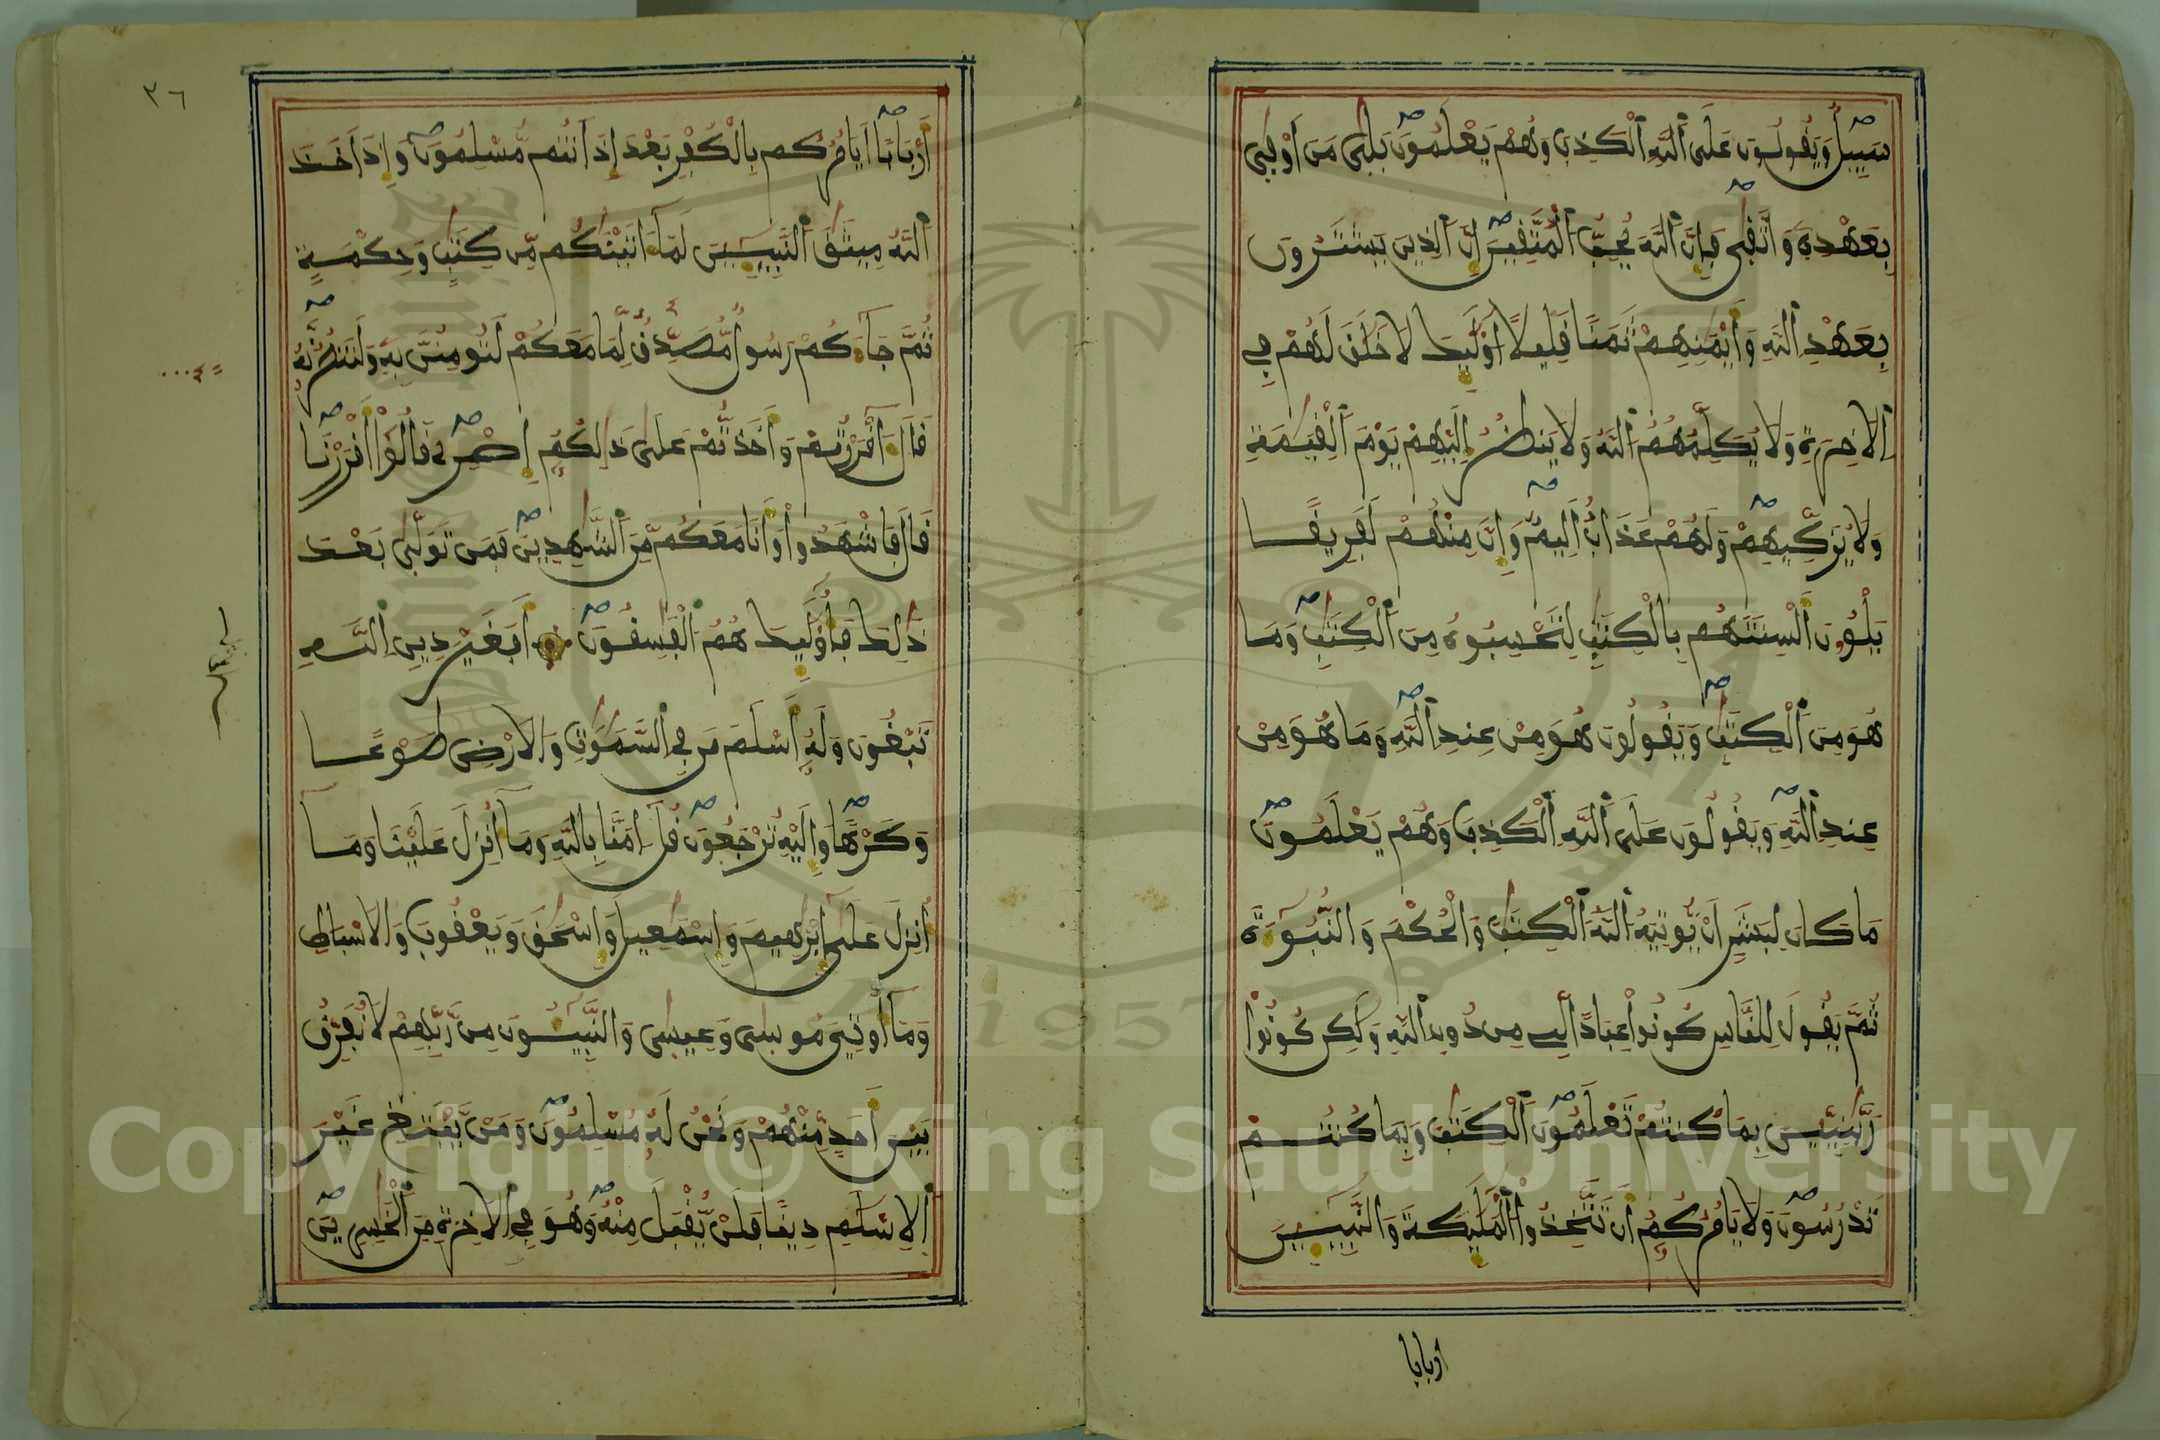 سَبِيلٌ وَيَقُولُونَ عَلَى ٱللَّهِ ٱلْكَذِبَ وَهُمْ يَعْلَمُونَ بَلَىٰ مَنْ أَوْفَىٰ
بِعَهْدِهِۦ وَٱتَّقَىٰ فَإِنَّ ٱللَّهَ يُحِبُّ ٱلْمُتَّقِينَ إِنَّ ٱلذِينَ يَشْتَرُونَ
بِعَهْدِ ٱللَّهِ وَأَيْمَٰنِهِمْ ثَمَنًا قَلِيلًا أُوْلَٰٓئِكَ لَا خَلَٰقَ لَهُمْ فِي
ٱلَاخِرَةِ وَلَا يُكَلِّمُهُمُ ٱللَّهُ وَلَا يَنظُرُ إِلَيْهِمْ يَوْمَ ٱلْقِيَٰمَةِ
وَلَا يُزَكِّيهِمْ وَلَهُمْ عَذَابٌ أَلِيمٌ وَإِنَّ مِنْهُمْ لَفَرِيقًا
يَلْوُۥنَ أَلْسِنَتَهُم بِالْكِتَٰبِ لِتَحْسِبُوهُ مِنَ ٱلْكِتَٰبِ وَمَا
هُوَ مِنَ ٱلْكِتَٰبِ وَيَقُولُونَ هُوَ مِنْ عِندِ ٱللَّهِ وَمَا هُوَ مِنْ
عِندِ ٱللَّهِ وَيَقُولُونَ عَلَى ٱللَّهِ ٱلْكَذِبَ وَهُمْ يَعْلَمُونَ
مَا كَانَ لِبَشَرٍ أَنْ يُّوتِيَهُ ٱللَّهُ ٱلْكِتَٰبَ وَالْحُكْمَ وَالنُّبُوٓءَةَ
ثُمَّ يَقُولَ لِلنَّاسِ كُونُواْ عِبَادًا لِّے مِن دُونِ ٱللَّهِ وَلَٰكِن كُونُواْ
رَبَّٰنِيِّينَ بِمَا كُنتُمْ تَعْلَمُونَ ٱلْكِتَٰبَ وَبِمَا كُنتُمْ
تَدْرُسُونَ وَلَا يَامُرُكُمُۥٓ أَن تَتَّخِذُواْ ٱلْمَلَٰٓئِكَةَ وَالنَّبِيٓـِٕينَ
اربابا
٣٦
أَرْبَابًا أَيَامُرُكُم بِالْكُفْرِ بَعْدَ إِذَ اَنتُم مُّسْلِمُونَ وَإِذَ اَخَذَ
ٱللَّهُ مِيثَٰقَ ٱلنَّبِيٓـِٕينَ لَمَآ ءَاتَيْنَٰكُم مِّن كِتَٰبٍ وَحِكْمَةٍ
ثُمَّ جَآءَكُمْ رَسُولٌ مُّصَدِّقٌ لِّمَا مَعَكُمْ لَتُومِنُنَّ بِهِۦ وَلَتَنصُرُنَّهُ
قَالَ ءَآقْرَرْتُمْ وَأَخَذتُّمْ عَلَىٰ ذَٰلِكُمُۥٓ إِصْرِے قَالُوٓاْ أَقْرَرْنَا
قَالَ فَاشْهَدُواْ وَأَنَا مَعَكُم مِّنَ ٱلشَّٰهِدِينَ فَمَن تَوَلَّىٰ بَعْدَ
ذَٰلِكَ فَأُوْلَٰٓئِكَ هُمُ ٱلْفَٰسِقُونَ أَفَغَيْرَ دِينِ ٱللَّهِ
تَبْغُونَ وَلَهُۥٓ أَسْلَمَ مَن فِي ٱلسَّمَٰوَٰتِ وَالَارْضِ طَوْعًا
وَكَرْهًا وَإِلَيْهِ تُرْجَعُونَ قُلَ اٰمَنَّا بِاللَّهِ وَمَآ أُنزِلَ عَلَيْنَا وَمَآ
أُنزِلَ عَلَىٰٓ إِبْرَٰهِيمَ وَإِسْمَٰعِيلَ وَإِسْحَٰقَ وَيَعْقُوبَ وَالَاسْبَاطِ
وَمَآ أُوتِيَ مُوسَىٰ وَعِيسَىٰ وَالنَّبِيٓـُٔونَ مِن رَّبِّهِمْ لَا نُفَرِّقُ
بَيْنَ أَحَدٍ مِّنْهُمْ وَنَحْنُ لَهُۥ مُسْلِمُونَ وَمَنْ يَّبْتَغِ غَيْرَ
ٱلِاسْلَٰمِ دِينًا فَلَنْ يُّقْبَلَ مِنْهُ وَهُوَ فِي ٱلَاخِرَةِ مِنَ ٱلْخَٰسِرِينَ
1957
Copyright © King Saud University